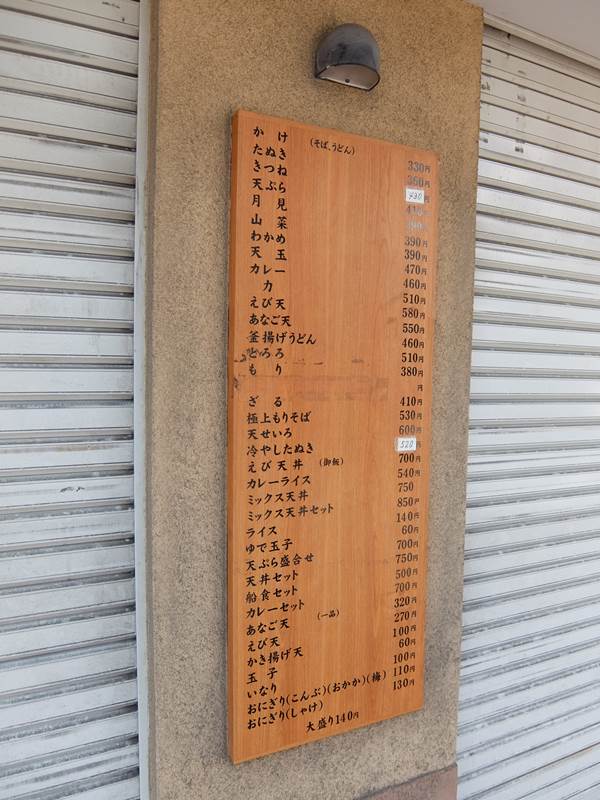 かけ (そば、うどん) 330円
たぬき 360円
きつね 430円
天ぷら 410円
月見 390円
山菜 390円
わかめ 390円
天玉 470円
カレー 460円
力 510円
えび天 580円
あなご天 550円
釜揚げうどん 460円
とろろ 510円
もり 380円
円
ざる 410円
極上もりそば 530円
天せいろ 600円
冷やしたぬき 520円
えび天丼 (御飯) 700円
カレーライス 540円
ミックス天丼 750
ミックス天丼セット 850円
ライス 140円
ゆで玉子 60円
天ぷら盛合せ 700円
天丼セット 750円
船食セット 500円
カレーセット 700円
あなご天 (一品) 320円
えび天 270円
かき揚げ天 100円
玉子 60円
いなり 100円
おにぎり(こんぶ)(おかか)(梅) 110円
おにぎり(しゃけ) 130円
大盛り140円